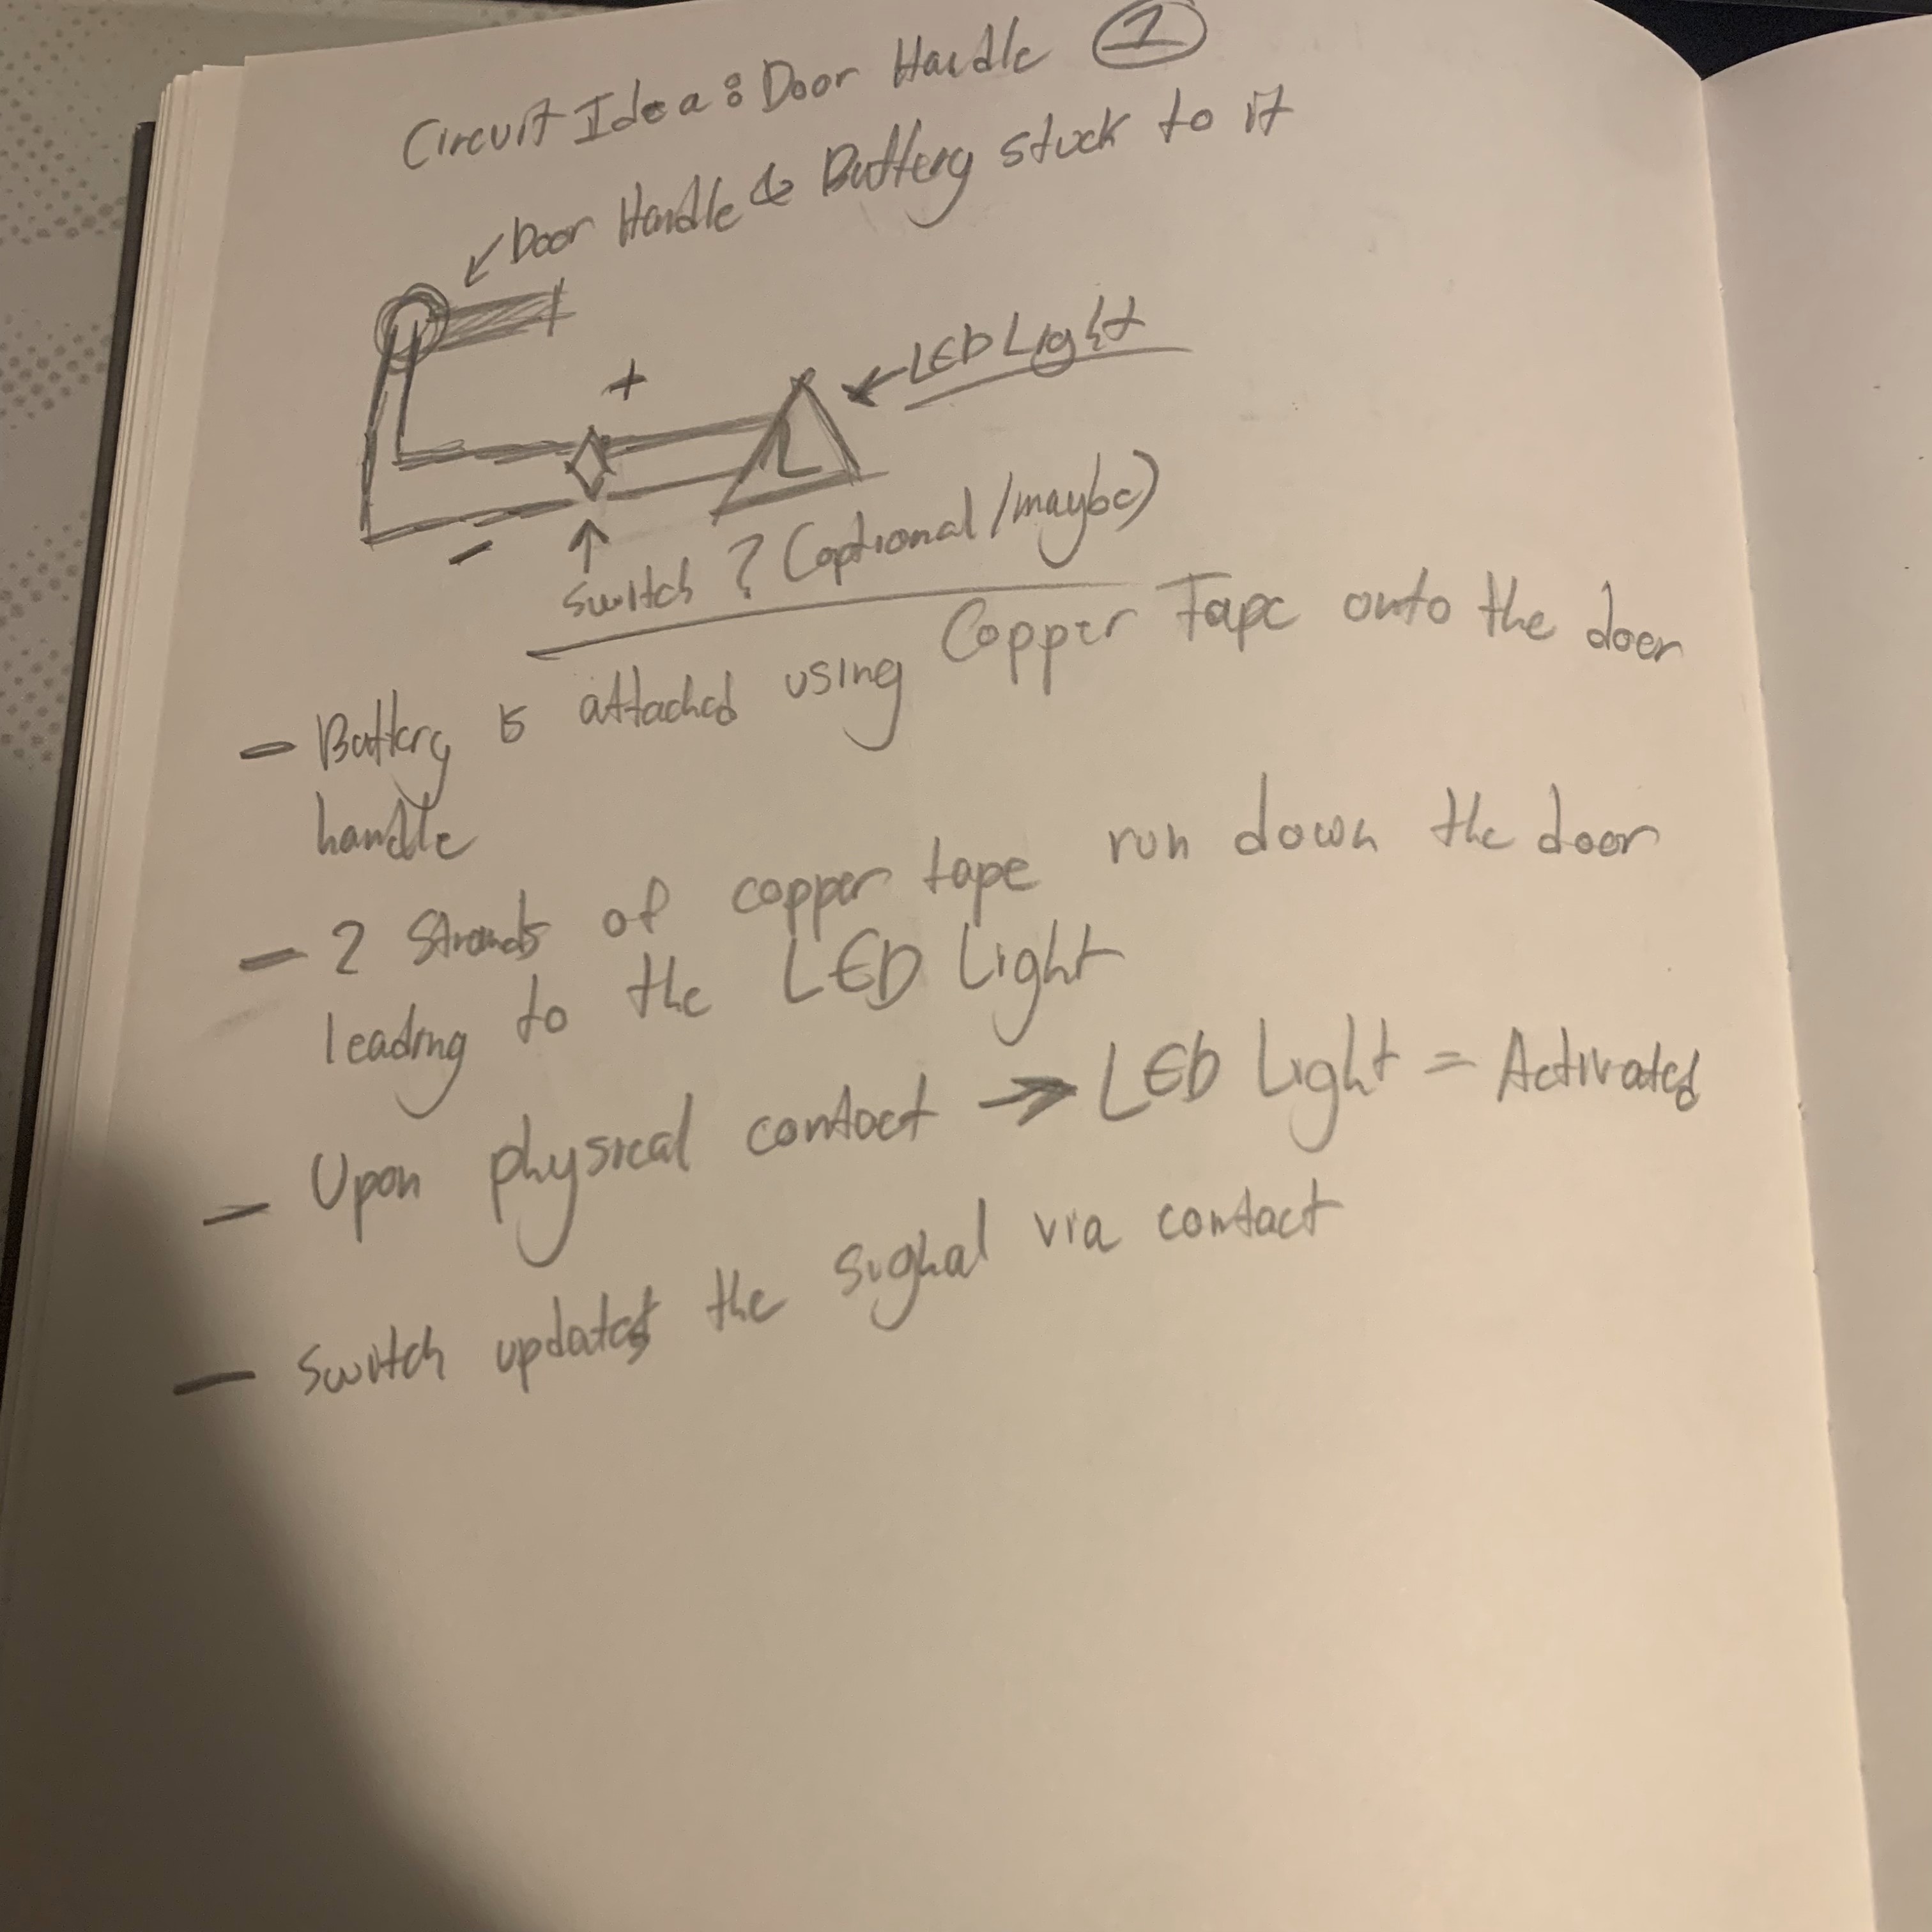 Circuit Idea: Door Handle 1
Door Handle & Battery stuck to it
+
LED Light
L
-
Switch? (optional/maybe)
- Battery is attached using Copper Tape onto the door
handle
- 2 Strands of copper tape run down the door
leading to the LED Light
- Upon physical contact → LED Light = Activated
- Switch updates the signal via contact